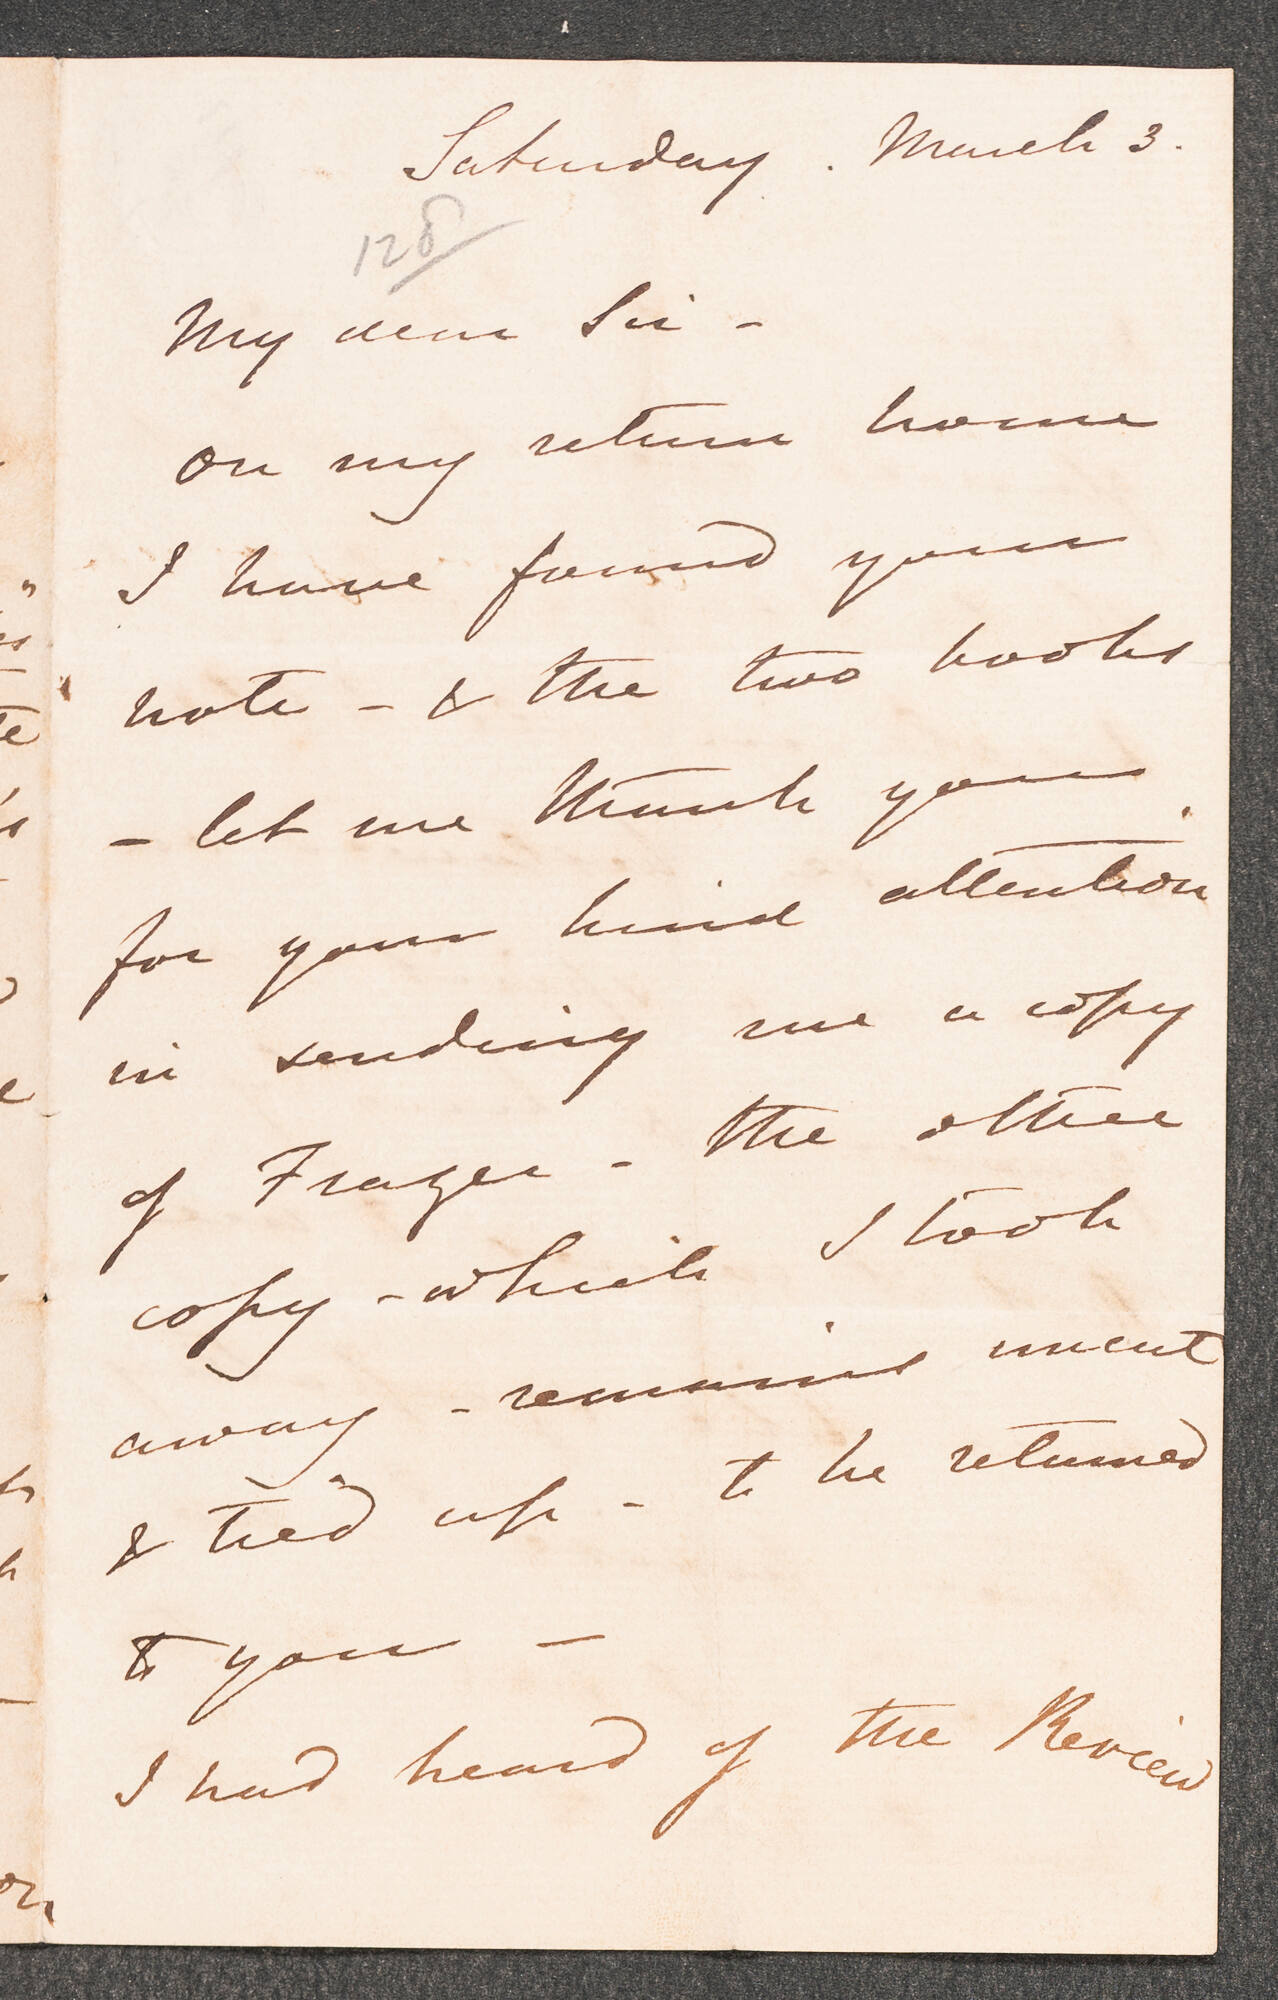 Saturday. March 3.
128
My dear Sir -
On my return home
I have found your
note - & the two books
- let me thank you
for your kind attention
in sending me a copy
of Frazer - the other
copy - which I took
away - remains uncut
& tied up - to be returned
to you -
I had heard of the Review